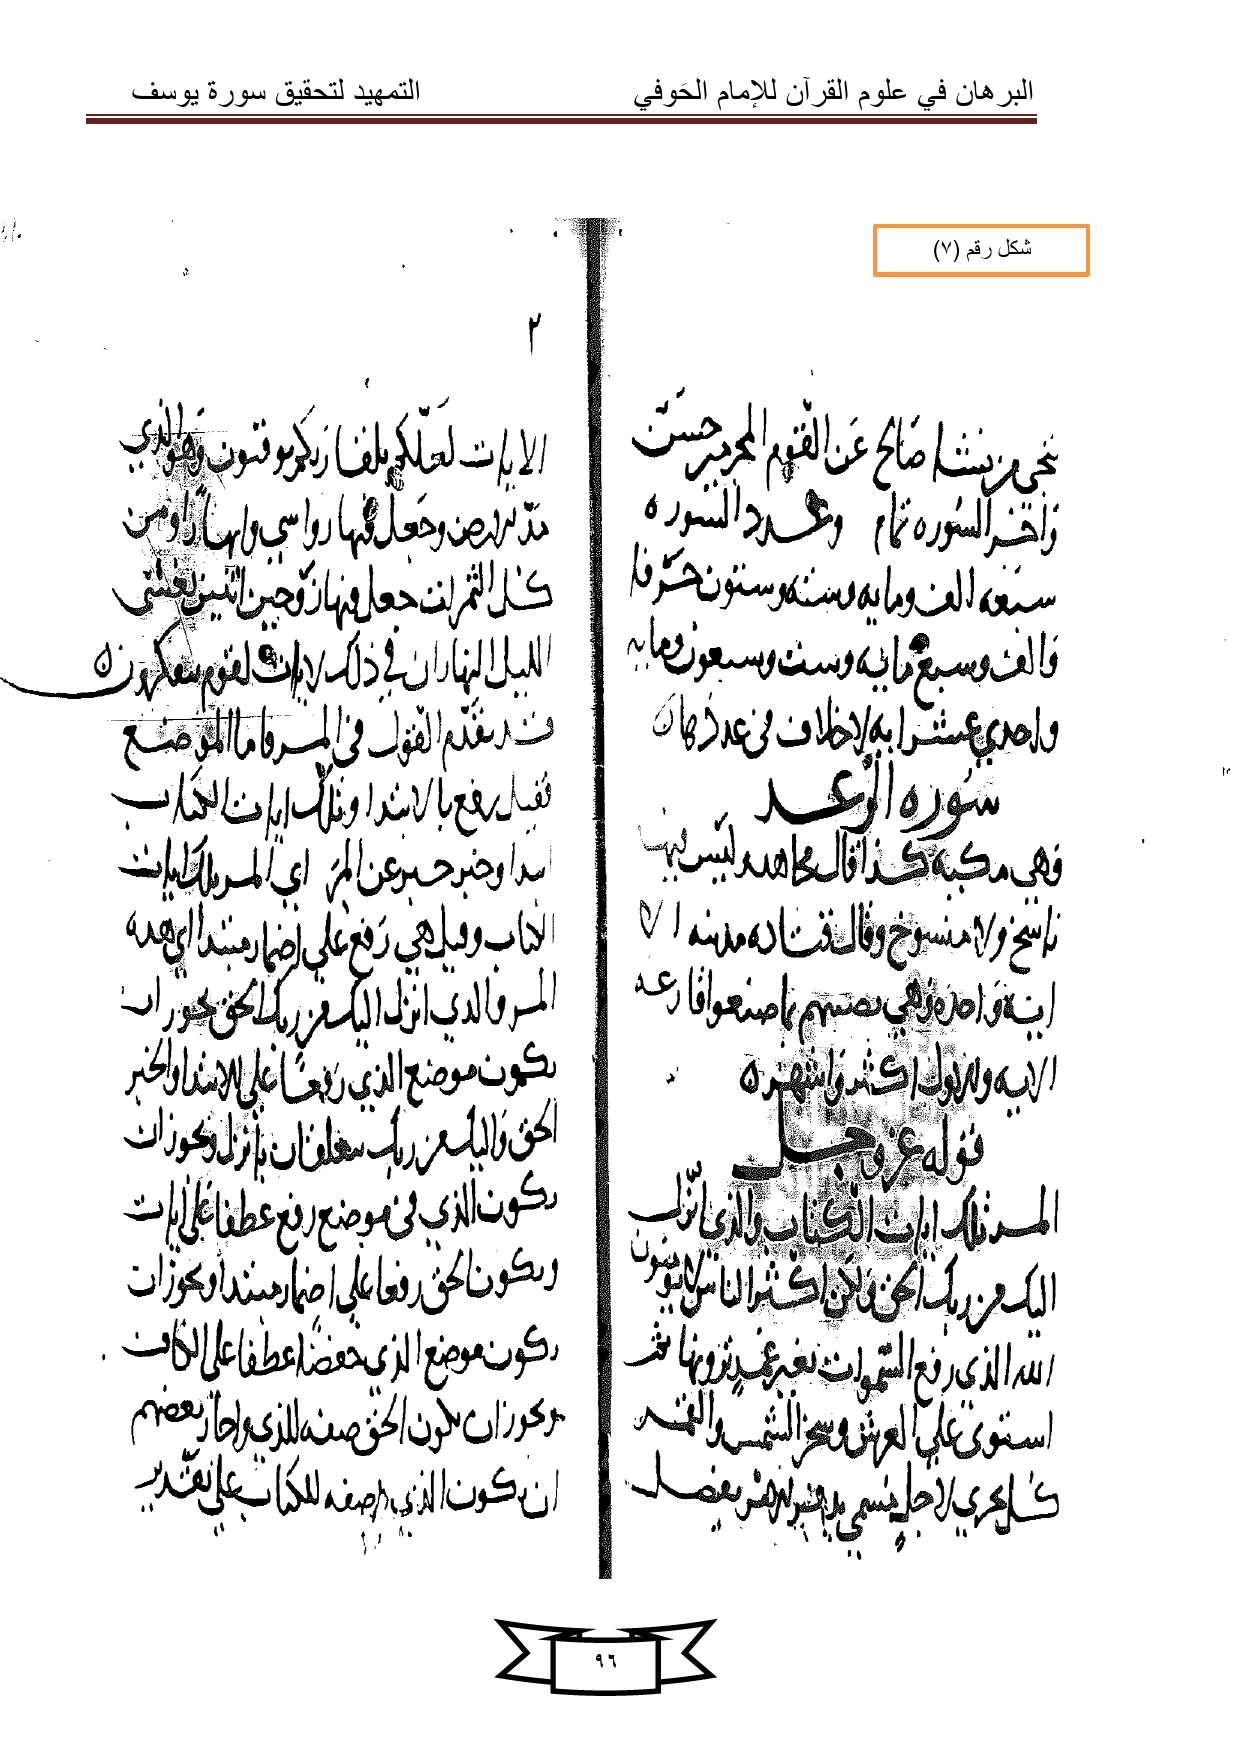 البرهان في علوم القرآن للإمام الحَوفي
التمهيد لتحقيق سورة يوسف
شكل رقم (٧)
نحي من نشا صَالح عَن القوم المجرمين حسَن
وَاخر السُوره تمام وعدد السوره
سَبعه الف ومايه وسته وستون حَرفا
وَالف وسبع مايه وست وسبعون ومايه
واحدي عشر ايه لا خلاف في عددها ه
سُوره الرّعد
وهي مكيه كذا قال مجاهد وليَس فيها
ناسخ ولا منسوخ وقال قتاده مدنيه الا
ايه وَاحده وَهي تصيبهم بما صنعوا قارعه
الايه والاول اكثر وَاشهر ه
قوله عز وجل
المر تلك ايات الكتاب والذي انزل
اليك من ربك الحق وَلكن اكثر الناس لا يومنون
الله الذي رفع السّموات بغير عَمدٍ ترونها ثم
استوي علي العرش وسخر الشمس والقمر
كل يجري لاجل مسمي يدبر الامر يفصل
٢
الايات لعَلّكم بلقا ربكم توقنون وَهو الذي
مدّ الارض وجَعل فيها رواسي وانهارًا ومن
كل الثمرات جعل فيها زَوجين اثنين يغشي
الليل النهار ان في ذلك لايات لقوم يتفكرون ه
قد تقدّم القول في المر فاما الموضع
فقيل رفع بالابتدا وتلك ايات الكتاب
ابتدا وخبر خبر عن المر اي المر تلك ايات
الكتاب وقيل هي رَفع علي اضمار مبتدا اي هده
المر والذي انزل اليك من ربك الحق يجوز ان
يكون موضع الذي رَفعًا علي الابتدا والخبر
الحق وَاليك من ربك متعلقان بانزل ويجوز ان
يكون الذي في موضع رفع عطفا علي ايات
ويكون الحق رفعا علي اضمار مبتدا ويجوز ان
يكون موضع الذي خفضًا عطفا علي الكتاب
ويجوز ان يكون الحق صفه للذي واجاز بعضهم
ان يكون الذي صفه للكتاب علي تقدير
٩٦